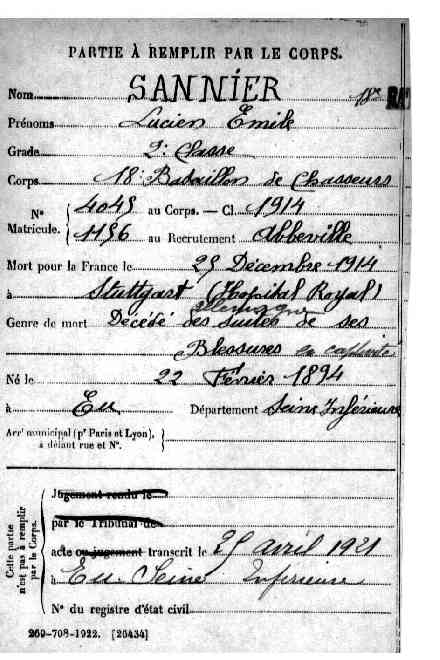 PARTIE À REMPLIR PAR LE CORPS.
Nom SANNIER
Prénoms Lucien Émile
Grade 2e Classe
Corps 18e Bataillon de Chasseurs
N° Matricule. 4045 au Corps. — Cl. 1914
1156 au Recrutement Abbeville
Mort pour la France le 25 Décembre 1914
à Stuttgart (Hopital Royal)
Allemagne
Genre de mort Décédé des suites de ses
Blessures en captivité
Né le 22 Février 1894
à Eu Département Seine Inférieure
Arrt municipal (pr Paris et Lyon),
à défaut rue et N°.
Cette partie n'est pas à remplir par le Corps.
Jugement rendu le
par le Tribunal de
acte ou jugement transcrit le 25 avril 1921
à Eu. Seine Inférieure
N° du registre d'état civil
269-708-1922. [26434]